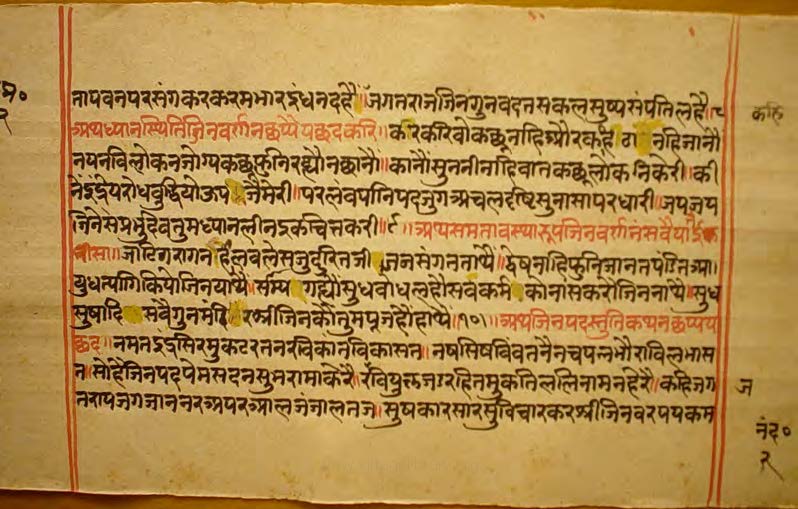 प्र०
२
नापवनपरसंगकरकरमभारइंधनदहै॥जगतराजजिनगुनवदनसकलसुष्पसंपतिलहै॥८
कहि
अथध्यानस्थितिजिनवर्णनछप्पैयछदकरि॥करिकरिवोकछूनाहिऔरकह नहिजानौ
नयनविलोकनजोग्यकछूफुनिरह्यौनछानौ॥कानौसुननीनाहिवातकछूलोकनिकेरी॥की
नेंइंद्रीयरोधबुद्धियोऊप जैमेरी॥परलंवपनिपदजुगअचलदृष्टिसुनासापरधारी॥जयजय
जिनेसप्रभुदेवतुमध्यानलीनइकचित्तकरी॥९॥अथसमतावस्थारूपजिनवर्णनंसवैयाईक
तीसा॥जोटिगरागन हैलवलेसजुदुरितजी जनसंगननाथै॥द्वेषनाहिफुनिजानत
युधत्यागिकियोजिनयाथै॥सम्प गह्यौसुधवोधलहौसवकर्म कोनासकरोजिननाथै॥सुध
सुषादि सवैगुनमंरि रश्रीजिनकौतुमपूजहैहाथै॥१०॥अथजिनपदस्तुतिकथनछप्पय
छद॥नमनइंद्रसिरमुकटरतनरविकानविकासन॥नषसिषविंवतनैनचपलभौराविलभास
न॥सोहैजिनपदपेमसदनसुमरामाकेरै॥रविपुक्तजगरहितमुकतिललिनामनहेरै॥कहिजग
ज
नरायजगजाननरअपरआलजंजालनज॥सुषकारसारसुविचारकरश्रीजिनवरपयकम
नंद०
२